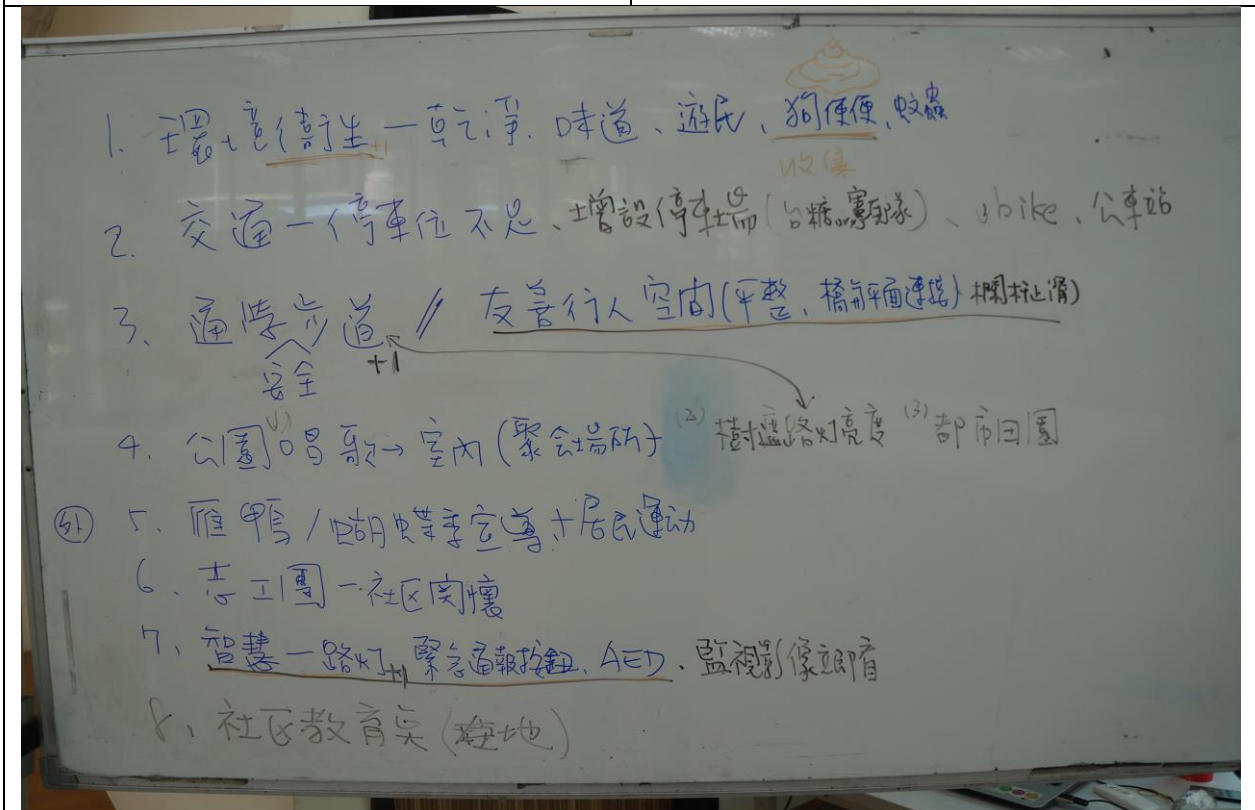 1. 環境衛生 — 乾淨、味道、遊民、狗便便、蚊蟲
+1
收集
2. 交通 — 停車位不足、增設停車場(台糖賽車隊)、ubike、公車站
3. 通學步道 // 友善行人空間(平整、橋前平面連接)欄杆止滑)
+1
安全
4. 公園(1)唱歌→室內(聚会場所) (2)樹遮路灯亮度 (3)都市田園
外 5. 雁鴨/蝴蝶季宣導+居民運动
6. 志工團 — 社区関懷
7. 智慧 — 路灯+1 緊急通報按鈕、AED、監視影像立即看
8. 社区教育